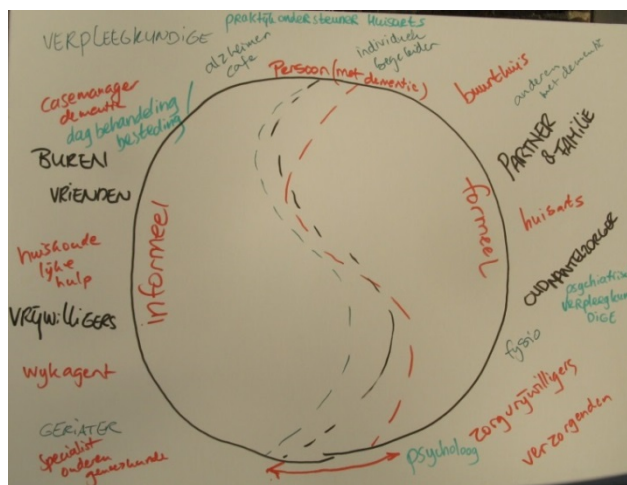 praktijkondersteuner Huisarts
VERPLEEGKUNDIGE
alzheimer
cafe
individueel
begeleiden
Persoon (met dementie)
casemanager
dementie
dagbehandeling/
besteding
buurthuis
anderen
met dementie
BUREN
VRIENDEN
PARTNER
& FAMILIE
informeel
formeel
huishoude
lijke
hulp
huisarts
OUD MANTELZORGER
psychiatrisch
verpleegkun
DIGE
VRIJWILLIGERS
fysio
wykagent
zorgvrijwilligers
GERIATER
specialist
ouderen
geneeskunde
psycholoog
verzorgenden